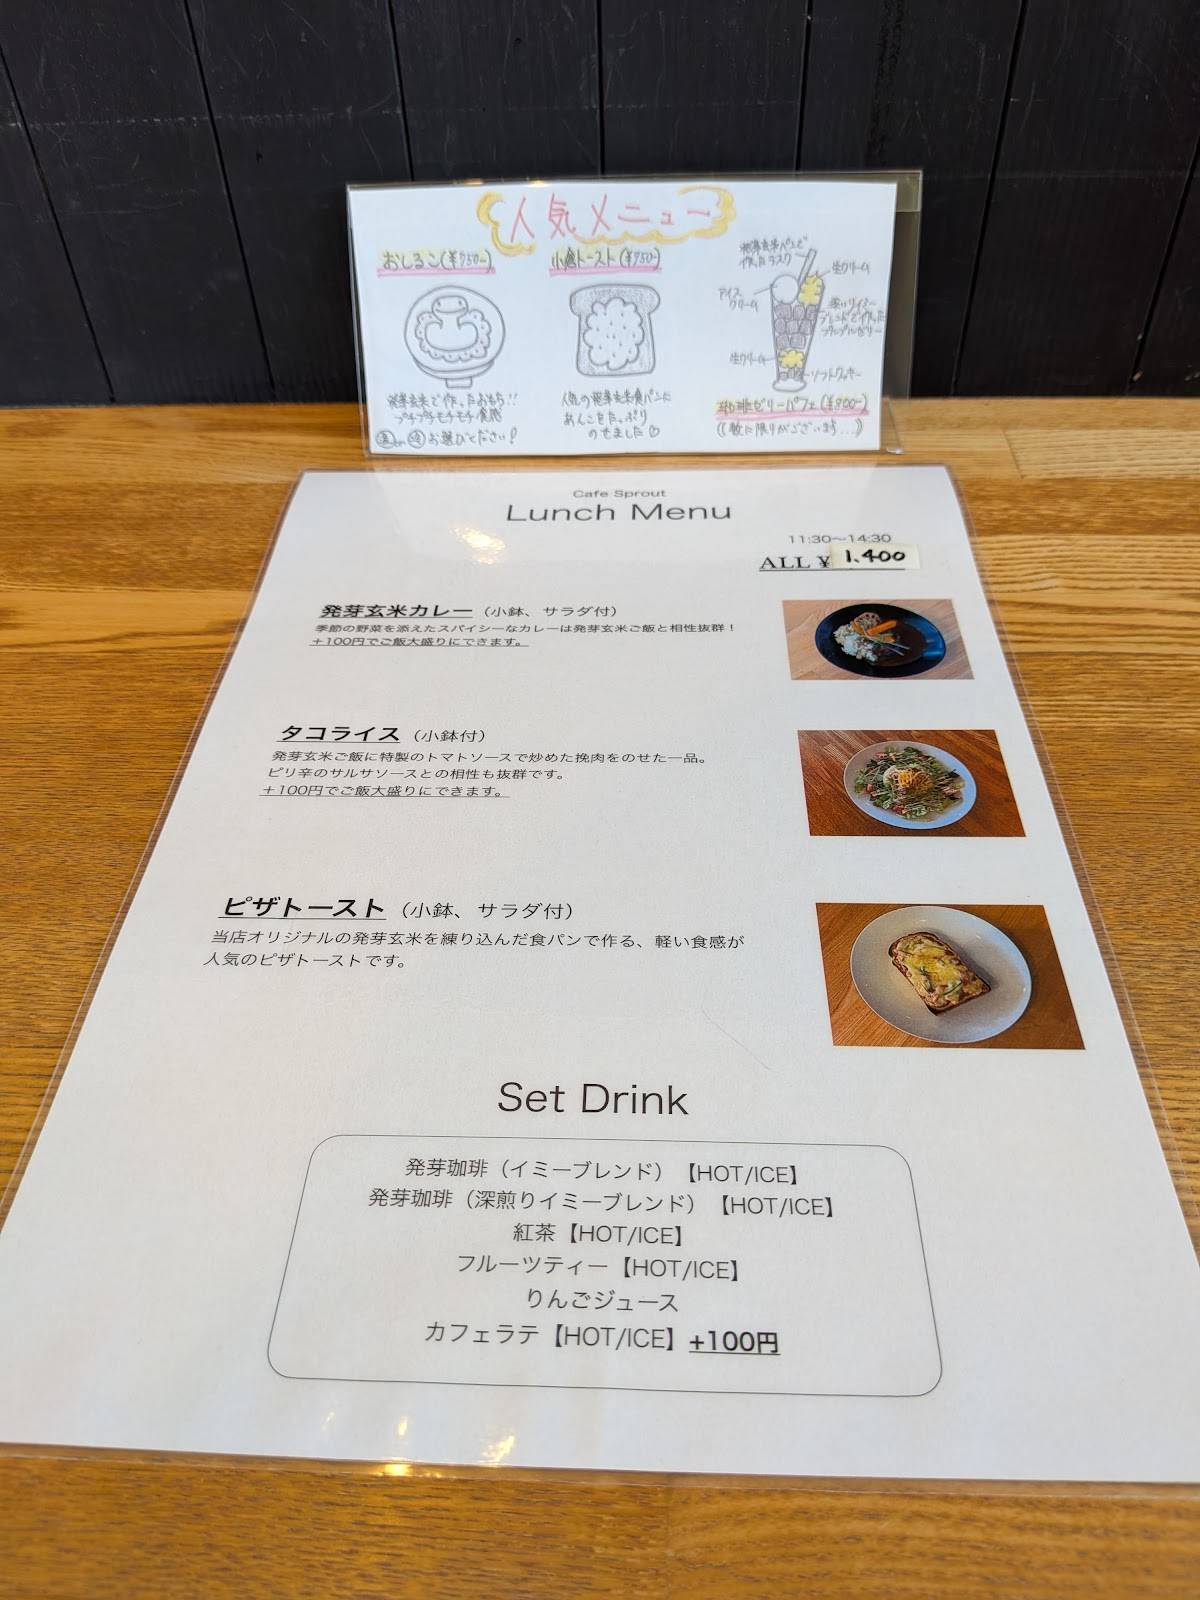 人気メニュー
おしるこ(¥750-)
小倉トースト(¥750-)
発芽玄米パンで
作ったラスク
生クリーム
アイス
クリーム
深いりイミー
ブレンドで作った
プルプルゼリー
生クリーム
ソフトクッキー
発芽玄米で作ったおもち!!
プチプチモチモチ食感
お選びください!
人気の発芽玄米食パンに
あんこをたっぷり
のせました♡
珈琲ゼリーパフェ(¥800-)
((数に限りがございます…))
Cafe Sprout
Lunch Menu
11:30～14:30
ALL ¥ 1.400
発芽玄米カレー（小鉢、サラダ付）
季節の野菜を添えたスパイシーなカレーは発芽玄米ご飯と相性抜群！
＋100円でご飯大盛りにできます。
タコライス（小鉢付）
発芽玄米ご飯に特製のトマトソースで炒めた挽肉をのせた一品。
ピリ辛のサルサソースとの相性も抜群です。
＋100円でご飯大盛りにできます。
ピザトースト（小鉢、サラダ付）
当店オリジナルの発芽玄米を練り込んだ食パンで作る、軽い食感が
人気のピザトーストです。
Set Drink
発芽珈琲（イミーブレンド）【HOT/ICE】
発芽珈琲（深煎りイミーブレンド）【HOT/ICE】
紅茶【HOT/ICE】
フルーツティー【HOT/ICE】
りんごジュース
カフェラテ【HOT/ICE】+100円